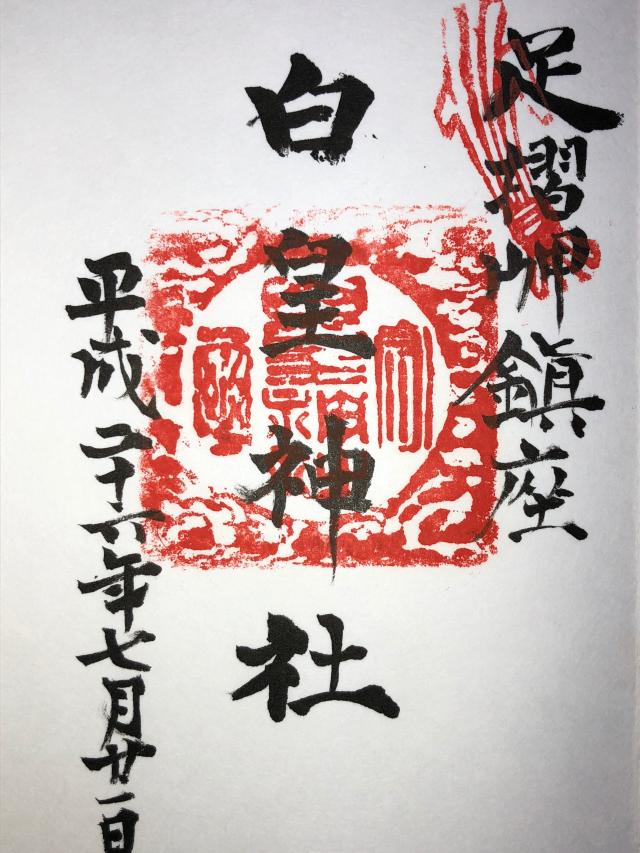 足摺岬鎮座
白皇神社
平成二十六年七月廿一日